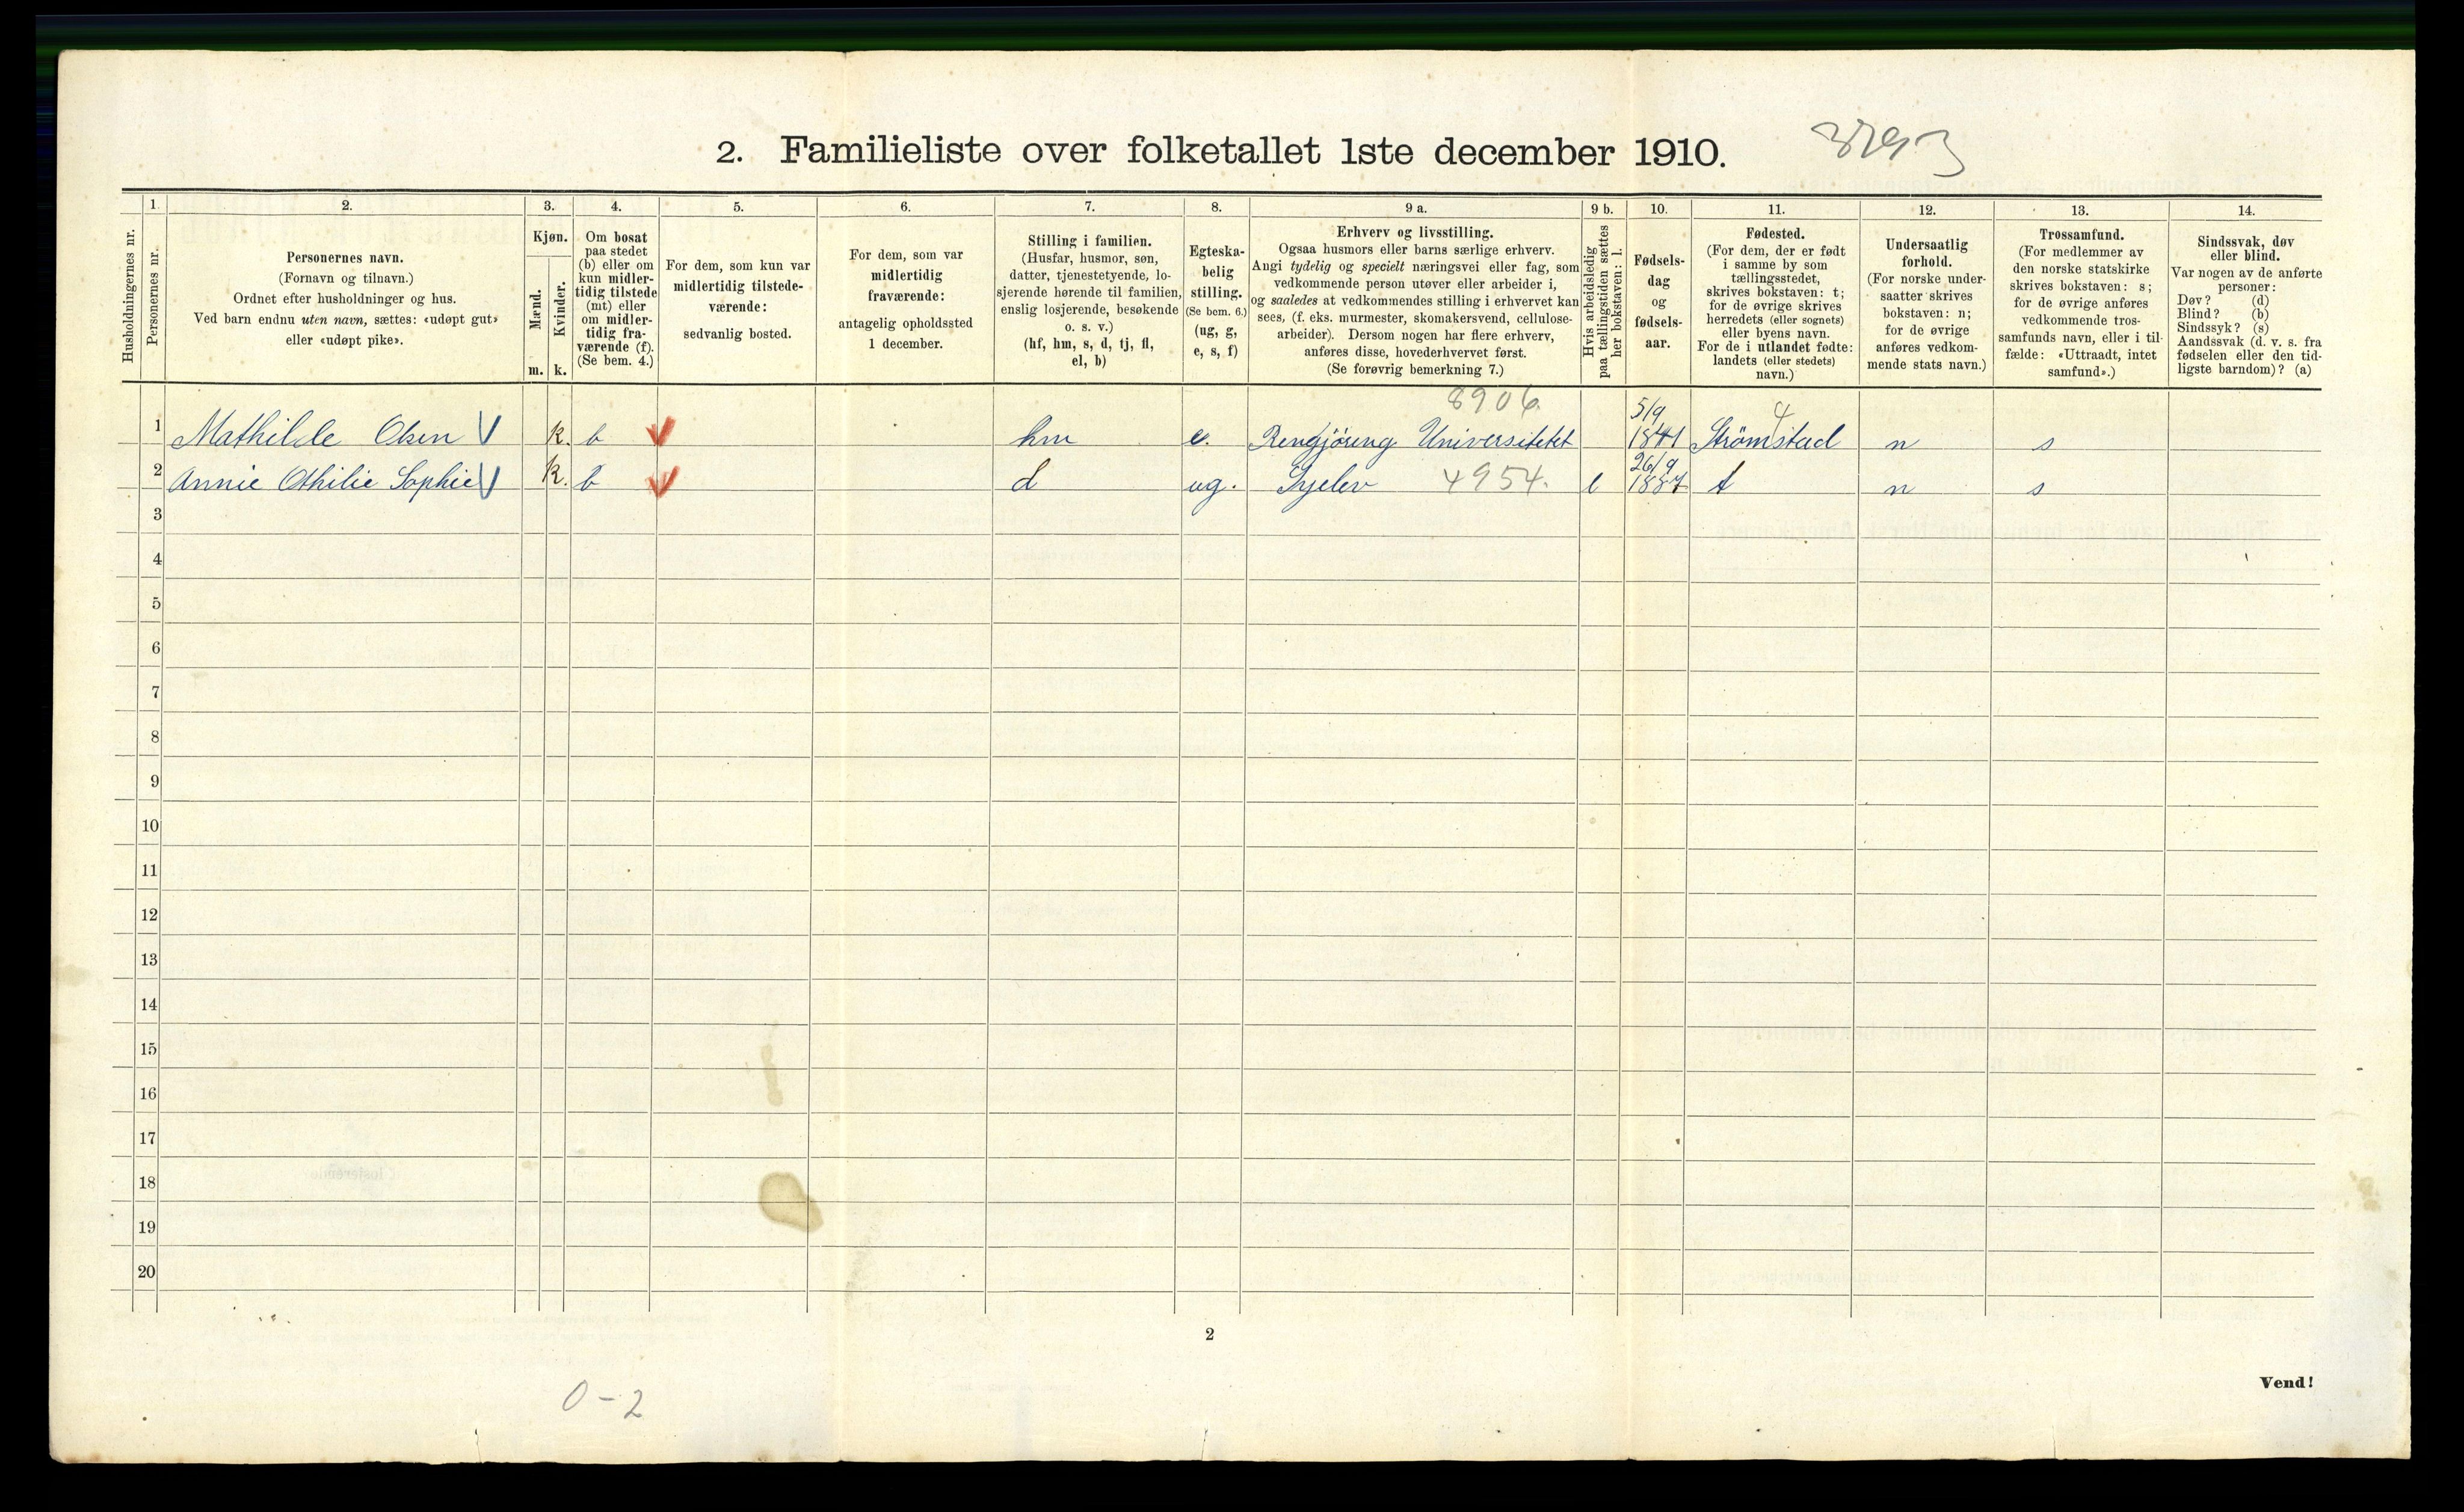 2. Familieliste over folketallet 1ste december 1910.
Husholdningernes nr.
1
Personernes nr.
2.
Personernes navn.
(Fornavn og tilnavn.)
Ordnet efter husholdninger og hus.
Ved barn endnu uten navn, sættes: «udøpt gut»
eller «udøpt pike».
3.
Kjøn.
Mænd.
Kvinder.
m. k.
4.
Om bosat
paa stedet
(b) eller om
kun midler-
tidig tilstede
(mt) eller
om midler-
tidig fra-
værende (f).
(Se bem. 4.)
5.
For dem, som kun var
midlertidig tilstede-
værende:
sedvanlig bosted.
6.
For dem, som var
midlertidig
fraværende:
antagelig opholdssted
1 december.
7.
Stilling i familien.
(Husfar, husmor, søn,
datter, tjenestetyende, lo-
sjerende hørende til familien,
enslig losjerende, besøkende
o. s. v.)
(hf, hm, s, d, tj, fl,
el, b)
8.
Egteska-
belig
stilling.
(Se bem. 6.)
(ug, g,
e, s, f)
9 a.
Erhverv og livsstilling.
Ogsaa husmors eller barns særlige erhverv.
Angi tydelig og specielt næringsvei eller fag, som
vedkommende person utøver eller arbeider i,
og saaledes at vedkommendes stilling i erhvervet kan
sees, (f. eks. murmester, skomakersvend, cellulose-
arbeider). Dersom nogen har flere erhverv,
anføres disse, hovederhvervet først.
(Se forøvrig bemerkning 7.)
9 b.
Hvis arbeidsledig
paa tællingstiden sættes
her bokstaven: l.
10.
Fødsels-
dag
og
fødsels-
aar.
11.
Fødested.
(For dem, der er født
i samme by som
tællingsstedet,
skrives bokstaven: t;
for de øvrige skrives
herredets (eller sognets)
eller byens navn.
For de i utlandet fødte:
landets (eller stedets)
navn.)
12.
Undersaatlig
forhold.
(For norske under-
saatter skrives
bokstaven: n;
for de øvrige
anføres vedkom-
mende stats navn.)
13.
Trossamfund.
(For medlemmer av
den norske statskirke
skrives bokstaven: s;
for de øvrige anføres
vedkommende tros-
samfunds navn, eller i til-
fælde: «Uttraadt, intet
samfund».)
14.
Sindssvak, døv
eller blind.
Var nogen av de anførte
personer:
Døv? (d)
Blind? (b)
Sindssyk? (s)
Aandssvak (d. v. s. fra
fødselen eller den tid-
ligste barndom)? (a)
8906. 5/9 4
1 Mathilde Olsen k. b hm e. Rengjöring Universitetet 1841 Strömstad n s
26/9
2 Annie Othilie Sophie k. b d ug. 4954. l 1887 t n s
3
4
5
6
7
8
9
10
11
12
13
14
15
16
17
18
19
20
2
Vend!
0-2